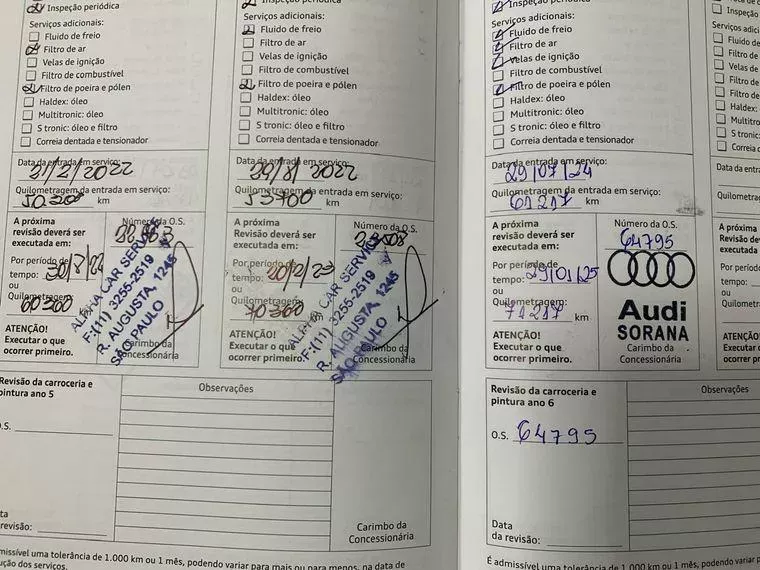 Inspeção periódica
Serviços adicionais:
Fluido de freio
Filtro de ar
Velas de ignição
Filtro de combustível
Filtro de poeira e pólen
Haldex: óleo
Multitronic: óleo
S tronic: óleo e filtro
Correia dentada e tensionador
Data da entrada em serviço:
31/2/2022
Quilometragem da entrada em serviço:
50.300 km
A próxima
revisão deverá ser
executada em:
Por período de
tempo: 30/8/22
ou
Quilometragem:
60300
ATENÇÃO!
Executar o que
ocorrer primeiro.
Número da O.S.
ALPHA CAR SERVICE
F:(11) 3255-2519
R. AUGUSTA, 1245
SÃO PAULO
Carimbo da
Concessionária
Revisão da carroceria e
pintura ano 5
O.S.
Data
da revisão:
Observações
Carimbo da
Concessionária
Inspeção periódica
Serviços adicionais:
Fluido de freio
Filtro de ar
Velas de ignição
Filtro de combustível
Filtro de poeira e pólen
Haldex: óleo
Multitronic: óleo
S tronic: óleo e filtro
Correia dentada e tensionador
Data da entrada em serviço:
2022
Quilometragem da entrada em serviço:
53700 km
A próxima
Revisão deverá ser
executada em:
Por período de
tempo:
ou
Quilometragem:
70300
ATENÇÃO!
Executar o que
ocorrer primeiro.
Número da O.S.
ALPHA CAR SERVICE
F:(11) 3255-2519
R. AUGUSTA, 1245
SÃO PAULO
Carimbo da
Concessionária
Inspeção periódica
Serviços adicionais:
Fluido de freio
Filtro de ar
Velas de ignição
Filtro de combustível
Filtro de poeira e pólen
Haldex: óleo
Multitronic: óleo
S tronic: óleo e filtro
Correia dentada e tensionador
Data da entrada em serviço:
29/07/24
Quilometragem da entrada em serviço:
61217 km
A próxima
revisão deverá ser
executada em:
Por período de
tempo: 29/01/25
ou
Quilometragem:
71217 km
ATENÇÃO!
Executar o que
ocorrer primeiro.
Número da O.S.
64795
Audi
SORANA
Carimbo da
Concessionária
Revisão da carroceria e
pintura ano 6
O.S. 64795
Data
da revisão:
Observações
Inspeção
Fluido de
Filtro de
Velas de
Filtro de
Filtro de
Haldex:
S tronic:
Correia
Data da entra
Quilometra
A próxima
Revisão dev
executada e
Por período
tempo:
ou
Quilometra
ATENÇÃO!
Executar o
ocorrer prim
admissível uma tolerância de 1.000 km ou 1 mês, podendo variar para mais ou para menos, na data de
execução dos serviços.
É admissível uma tolerância de 1.000 km ou 1 mês, podendo var